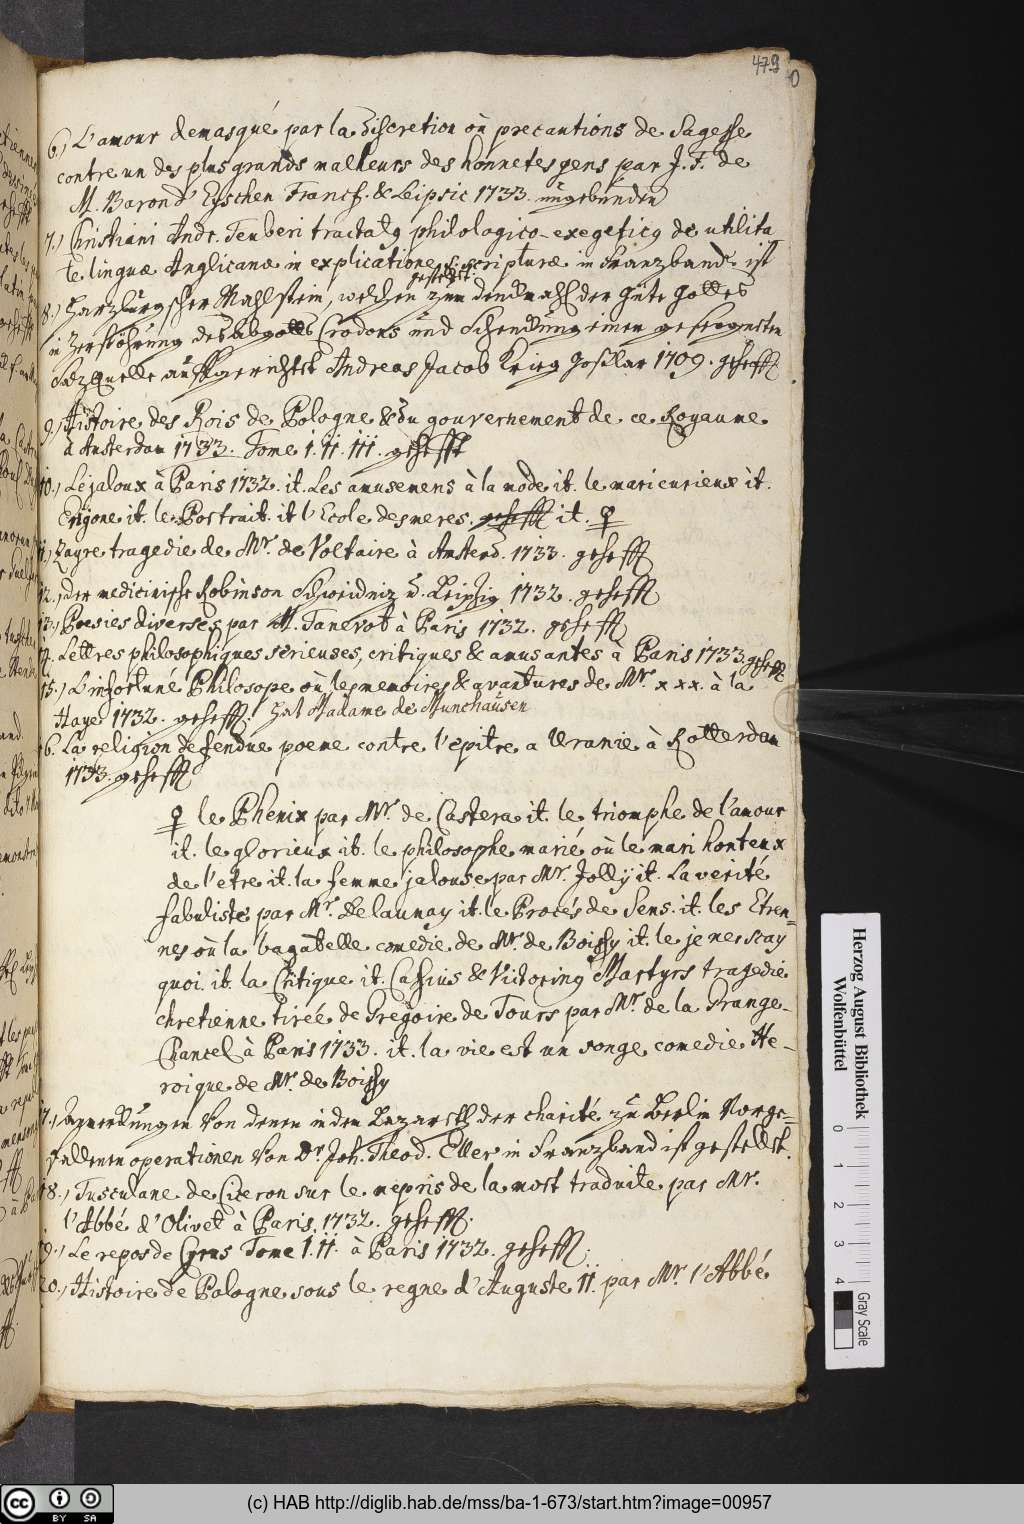 479
6.) L'amour demasqué par la Discretion où precautions de Sagesse
contre un des plus grands malheurs des honnetes gens par J. F. de
M. Baron d'Eyschen Francf. & Leipsic 1733. ungebunden
7.) Christiani Andr. Teuberi tractatus philologico-exegeticus de utilita
te linguæ Anglicanæ in explicatione S. scripturæ in Franzband. ist
gestellt.
8.) Harzburgscher Mahlstein, welchen zum denckmahl der Güte Gottes
in Zerstöhrung des Abgotts Crodons und Schenckung einer gesegnesten
Salzquelle auffgerichtet Andreas Jacob Krieg Gosslar 1709. gehefft
9.) Histoire des Rois de Pologne & du gouvernement de ce Royaume
à Amsterdam 1733. Tome I. II. III. gehefft
10.) Le jaloux à Paris 1732. it. Les amusemens à la mode it. le mari curieux it.
Erigone it. le Portrait. it l'Ecole des meres. gehefft it. ♀
11.) Zayre tragedie de Mr. de Voltaire à Amsterd. 1733. gehefft
12.) der medicinische Robinson Schweidniz u. Leipzig 1732. gehefft
13.) Poesies diverses par M. Tanevot à Paris 1732. gehefft
14. Lettres philosophiques serieuses, critiques & amusantes à Paris 1733. gehefft
15.) L'infortuné Philosope où les memoires & avantures de Mr. xxx. à la
Haye 1732. gehefft. hat Madame de Munchausen
16. La religion defendue poeme contre l'epitre a Uranie à Rotterdam
1733. gehefft
♀ le Phenix par Mr. de Castera it. le triomphe de l'amour
it. le glorieux it. le philosophe marié où le mari honteux
de l'etre it. la femme jalouse par Mr. Jolly it. La verité
fabuliste par Mr. Delaunay it. le Procés de Sens. it. les Etren=
nes où la bagatelle comedie de Mr. de Boissy it. le je ne scay
quoi. it. la Critique it. Cassius & Victorinus Martyrs tragedie
chretienne tirée de Gregoire de Tours par Mr. de la Grange-
Chancel à Paris 1733. it. la vie est un songe comedie He-
roique de Mr. de Boissy
17.) Anmerckungen von denen in dem Lazareth der charité zu Berlin vorge=
fallenen operationen von Dr. Joh. Theod. Eller in Franzband ist gestellt.
18.) Tusculane de Ciceron sur le mepris de la mort traduite par Mr.
l'Abbé d'Olivet à Paris 1732. gehefft.
19.) Le repos de Cyrus Tome I. II. à Paris 1732. gehefft.
20.) Histoire de Pologne sous le regne d'Auguste II. par Mr. l'Abbé
Herzog August Bibliothek
Wolfenbüttel
0 1 2 3 4
Gray Scale
cc BY SA
(c) HAB http://diglib.hab.de/mss/ba-1-673/start.htm?image=00957